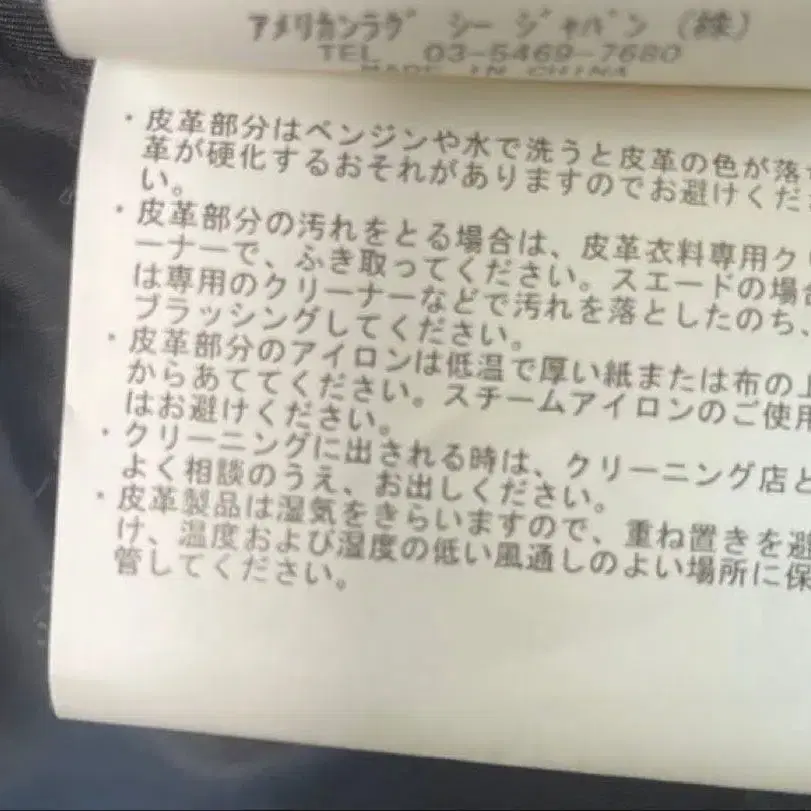 アメリカンラグ シー ジャパン (株)
TEL 03-5469-7680
MADE IN CHINA
・皮革部分はベンジンや水で洗うと皮革の色が落
革が硬化するおそれがありますのでお避けくだ
い。
・皮革部分の汚れをとる場合は、皮革衣料専用ク
ーナーで、ふき取ってください。スエードの場合
は専用のクリーナーなどで汚れを落としたのち、
ブラッシングしてください。
・皮革部分のアイロンは低温で厚い紙または布の上
からあててください。スチームアイロンのご使用
はお避けください。
・クリーニングに出される時は、クリーニング店と
よく相談のうえ、お出しください。
・皮革製品は湿気をきらいますので、重ね置きを避
け、温度および湿度の低い風通しのよい場所に保
管してください。